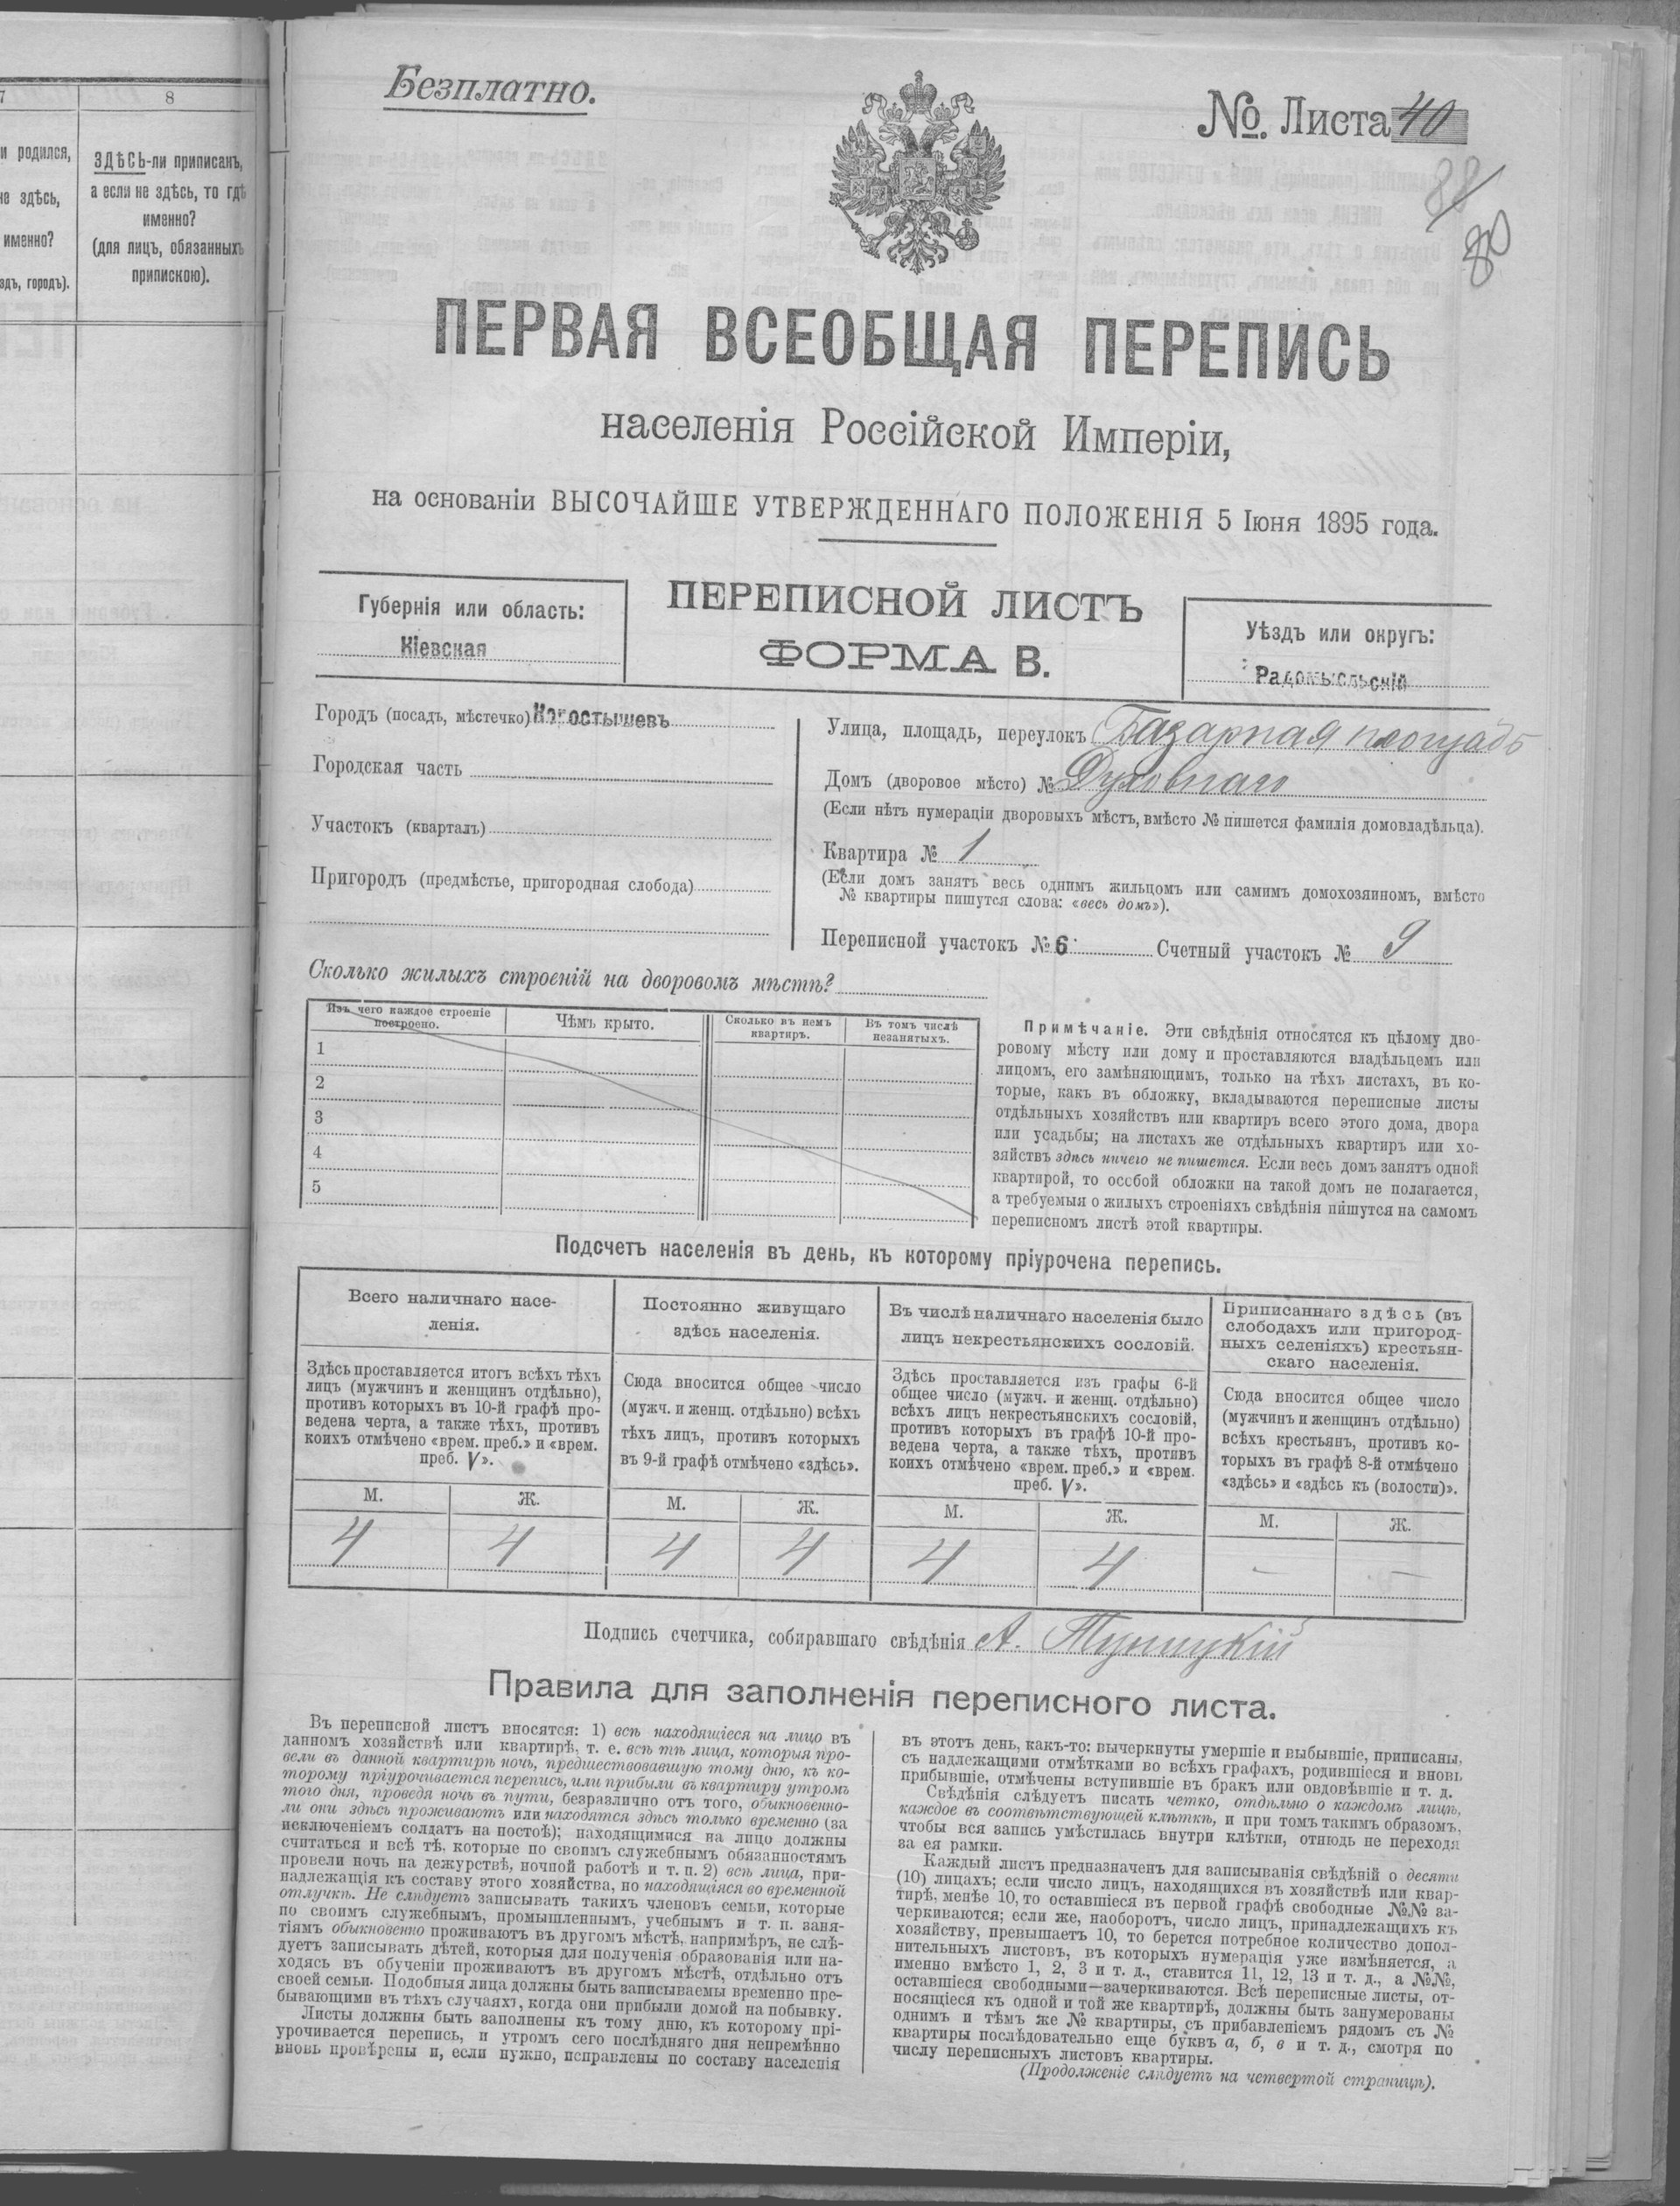 7
8
и родился,
не здѣсь,
именно?
здъ, городъ).
ЗДѢСЬ-ли приписанъ,
а если не здѣсь, то гдѣ
именно?
(для лицъ, обязанныхъ
припискою).
Безплатно.
№. Листа 40
88
80
ПЕРВАЯ ВСЕОБЩАЯ ПЕРЕПИСЬ
населенія Россійской Имперіи,
на основаніи ВЫСОЧАЙШЕ УТВЕРЖДЕННАГО ПОЛОЖЕНІЯ 5 Іюня 1895 года.
Губернія или область:
Кіевская
ПЕРЕПИСНОЙ ЛИСТЪ
ФОРМА В.
Уѣздъ или округъ:
Радомысльскій
Городъ (посадъ, мѣстечко) Коростышевъ
Городская часть
Участокъ (кварталъ)
Пригородъ (предмѣстье, пригородная слобода)
Улица, площадь, переулокъ Базарная площадь
Домъ (дворовое мѣсто) № Духовнаго
(Если нѣтъ нумераціи дворовыхъ мѣстъ, вмѣсто № пишется фамилія домовладѣльца).
Квартира № 1
(Если домъ занятъ весь однимъ жильцомъ или самимъ домохозяиномъ, вмѣсто
№ квартиры пишутся слова: «весь домъ»).
Переписной участокъ № 6 Счетный участокъ № 9
Сколько жилыхъ строеній на дворовомъ мѣстѣ?
Изъ чего каждое строеніе
построено.
Чѣмъ крыто.
Сколько въ немъ
квартиръ.
Въ томъ числѣ
незанятыхъ.
1
2
3
4
5
Примѣчаніе. Эти свѣдѣнія относятся къ цѣлому дво-
ровому мѣсту или дому и проставляются владѣльцемъ или
лицомъ, его замѣняющимъ, только на тѣхъ листахъ, въ ко-
торые, какъ въ обложку, вкладываются переписные листы
отдѣльныхъ хозяйствъ или квартиръ всего этого дома, двора
или усадьбы; на листахъ же отдѣльныхъ квартиръ или хо-
зяйствъ здѣсь ничего не пишется. Если весь домъ занятъ одной
квартирой, то особой обложки на такой домъ не полагается,
а требуемыя о жилыхъ строеніяхъ свѣдѣнія пишутся на самомъ
переписномъ листѣ этой квартиры.
Подсчетъ населенія въ день, къ которому пріурочена перепись.
Всего наличнаго насе-
ленія.
Здѣсь проставляется итогъ всѣхъ тѣхъ
лицъ (мужчинъ и женщинъ отдѣльно),
противъ которыхъ въ 10-й графѣ про-
ведена черта, а также тѣхъ, противъ
коихъ отмѣчено «врем. преб.» и «врем.
преб. V».
Постоянно живущаго
здѣсь населенія.
Сюда вносится общее число
(мужч. и женщ. отдѣльно) всѣхъ
тѣхъ лицъ, противъ которыхъ
въ 9-й графѣ отмѣчено «здѣсь».
Въ числѣ наличнаго населенія было
лицъ некрестьянскихъ сословій.
Здѣсь проставляется изъ графы 6-й
общее число (мужч. и женщ. отдѣльно)
всѣхъ лицъ некрестьянскихъ сословій,
противъ которыхъ въ графѣ 10-й про-
ведена черта, а также тѣхъ, противъ
коихъ отмѣчено «врем. преб.» и «врем.
преб. V».
Приписаннаго здѣсь (въ
слободахъ или пригород-
ныхъ селеніяхъ) крестьян-
скаго населенія.
Сюда вносится общее число
(мужчинъ и женщинъ отдѣльно)
всѣхъ крестьянъ, противъ ко-
торыхъ въ графѣ 8-й отмѣчено
«здѣсь» и «здѣсь къ (волости)».
М. Ж. М. Ж. М. Ж. М. Ж.
4 4 4 4 4 4 — —
Подпись счетчика, собиравшаго свѣдѣнія А. Туницкій
Правила для заполненія переписного листа.
Въ переписной листъ вносятся: 1) всѣ находящіеся на лицо въ
данномъ хозяйствѣ или квартирѣ, т. е. всѣ тѣ лица, которыя про-
вели въ данной квартирѣ ночь, предшествовавшую тому дню, къ ко-
торому пріурочивается перепись, или прибыли въ квартиру утромъ
того дня, проведя ночь въ пути, безразлично отъ того, обыкновенно-
ли они здѣсь проживаютъ или находятся здѣсь только временно (за
исключеніемъ солдатъ на постоѣ); находящимися на лицо должны
считаться и всѣ тѣ, которые по своимъ служебнымъ обязанностямъ
провели ночь на дежурствѣ, ночной работѣ и т. п. 2) всѣ лица, при-
надлежащія къ составу этого хозяйства, но находящіяся во временной
отлучкѣ. Не слѣдуетъ записывать такихъ членовъ семьи, которые
по своимъ служебнымъ, промышленнымъ, учебнымъ и т. п. заня-
тіямъ обыкновенно проживаютъ въ другомъ мѣстѣ, напримѣръ, не слѣ-
дуетъ записывать дѣтей, которыя для полученія образованія или на-
ходясь въ обученіи проживаютъ въ другомъ мѣстѣ, отдѣльно отъ
своей семьи. Подобныя лица должны быть записываемы временно пре-
бывающими въ тѣхъ случаяхъ, когда они прибыли домой на побывку.
Листы должны быть заполнены къ тому дню, къ которому прі-
урочивается перепись, и утромъ сего послѣдняго дня непремѣнно
вновь провѣрены и, если нужно, исправлены по составу населенія
въ этотъ день, какъ-то: вычеркнуты умершіе и выбывшіе, приписаны,
съ надлежащими отмѣтками во всѣхъ графахъ, родившіеся и вновь
прибывшіе, отмѣчены вступившіе въ бракъ или овдовѣвшіе и т. д.
Свѣдѣнія слѣдуетъ писать четко, отдѣльно о каждомъ лицѣ,
каждое въ соотвѣтствующей клѣткѣ, и при томъ такимъ образомъ,
чтобы вся запись умѣстилась внутри клѣтки, отнюдь не переходя
за ея рамки.
Каждый листъ предназначенъ для записыванія свѣдѣній о десяти
(10) лицахъ; если число лицъ, находящихся въ хозяйствѣ или квар-
тирѣ, менѣе 10, то оставшіеся въ первой графѣ свободные №№ за-
черкиваются; если же, наоборотъ, число лицъ, принадлежащихъ къ
хозяйству, превышаетъ 10, то берется потребное количество допол-
нительныхъ листовъ, въ которыхъ нумерація уже измѣняется, а
именно вмѣсто 1, 2, 3 и т. д., ставится 11, 12, 13 и т. д., а №№,
оставшіеся свободными—зачеркиваются. Всѣ переписные листы, от-
носящіеся къ одной и той же квартирѣ, должны быть занумерованы
однимъ и тѣмъ же № квартиры, съ прибавленіемъ рядомъ съ №
квартиры послѣдовательно еще буквъ а, б, в и т. д., смотря по
числу переписныхъ листовъ квартиры.
(Продолженіе слѣдуетъ на четвертой страницѣ).